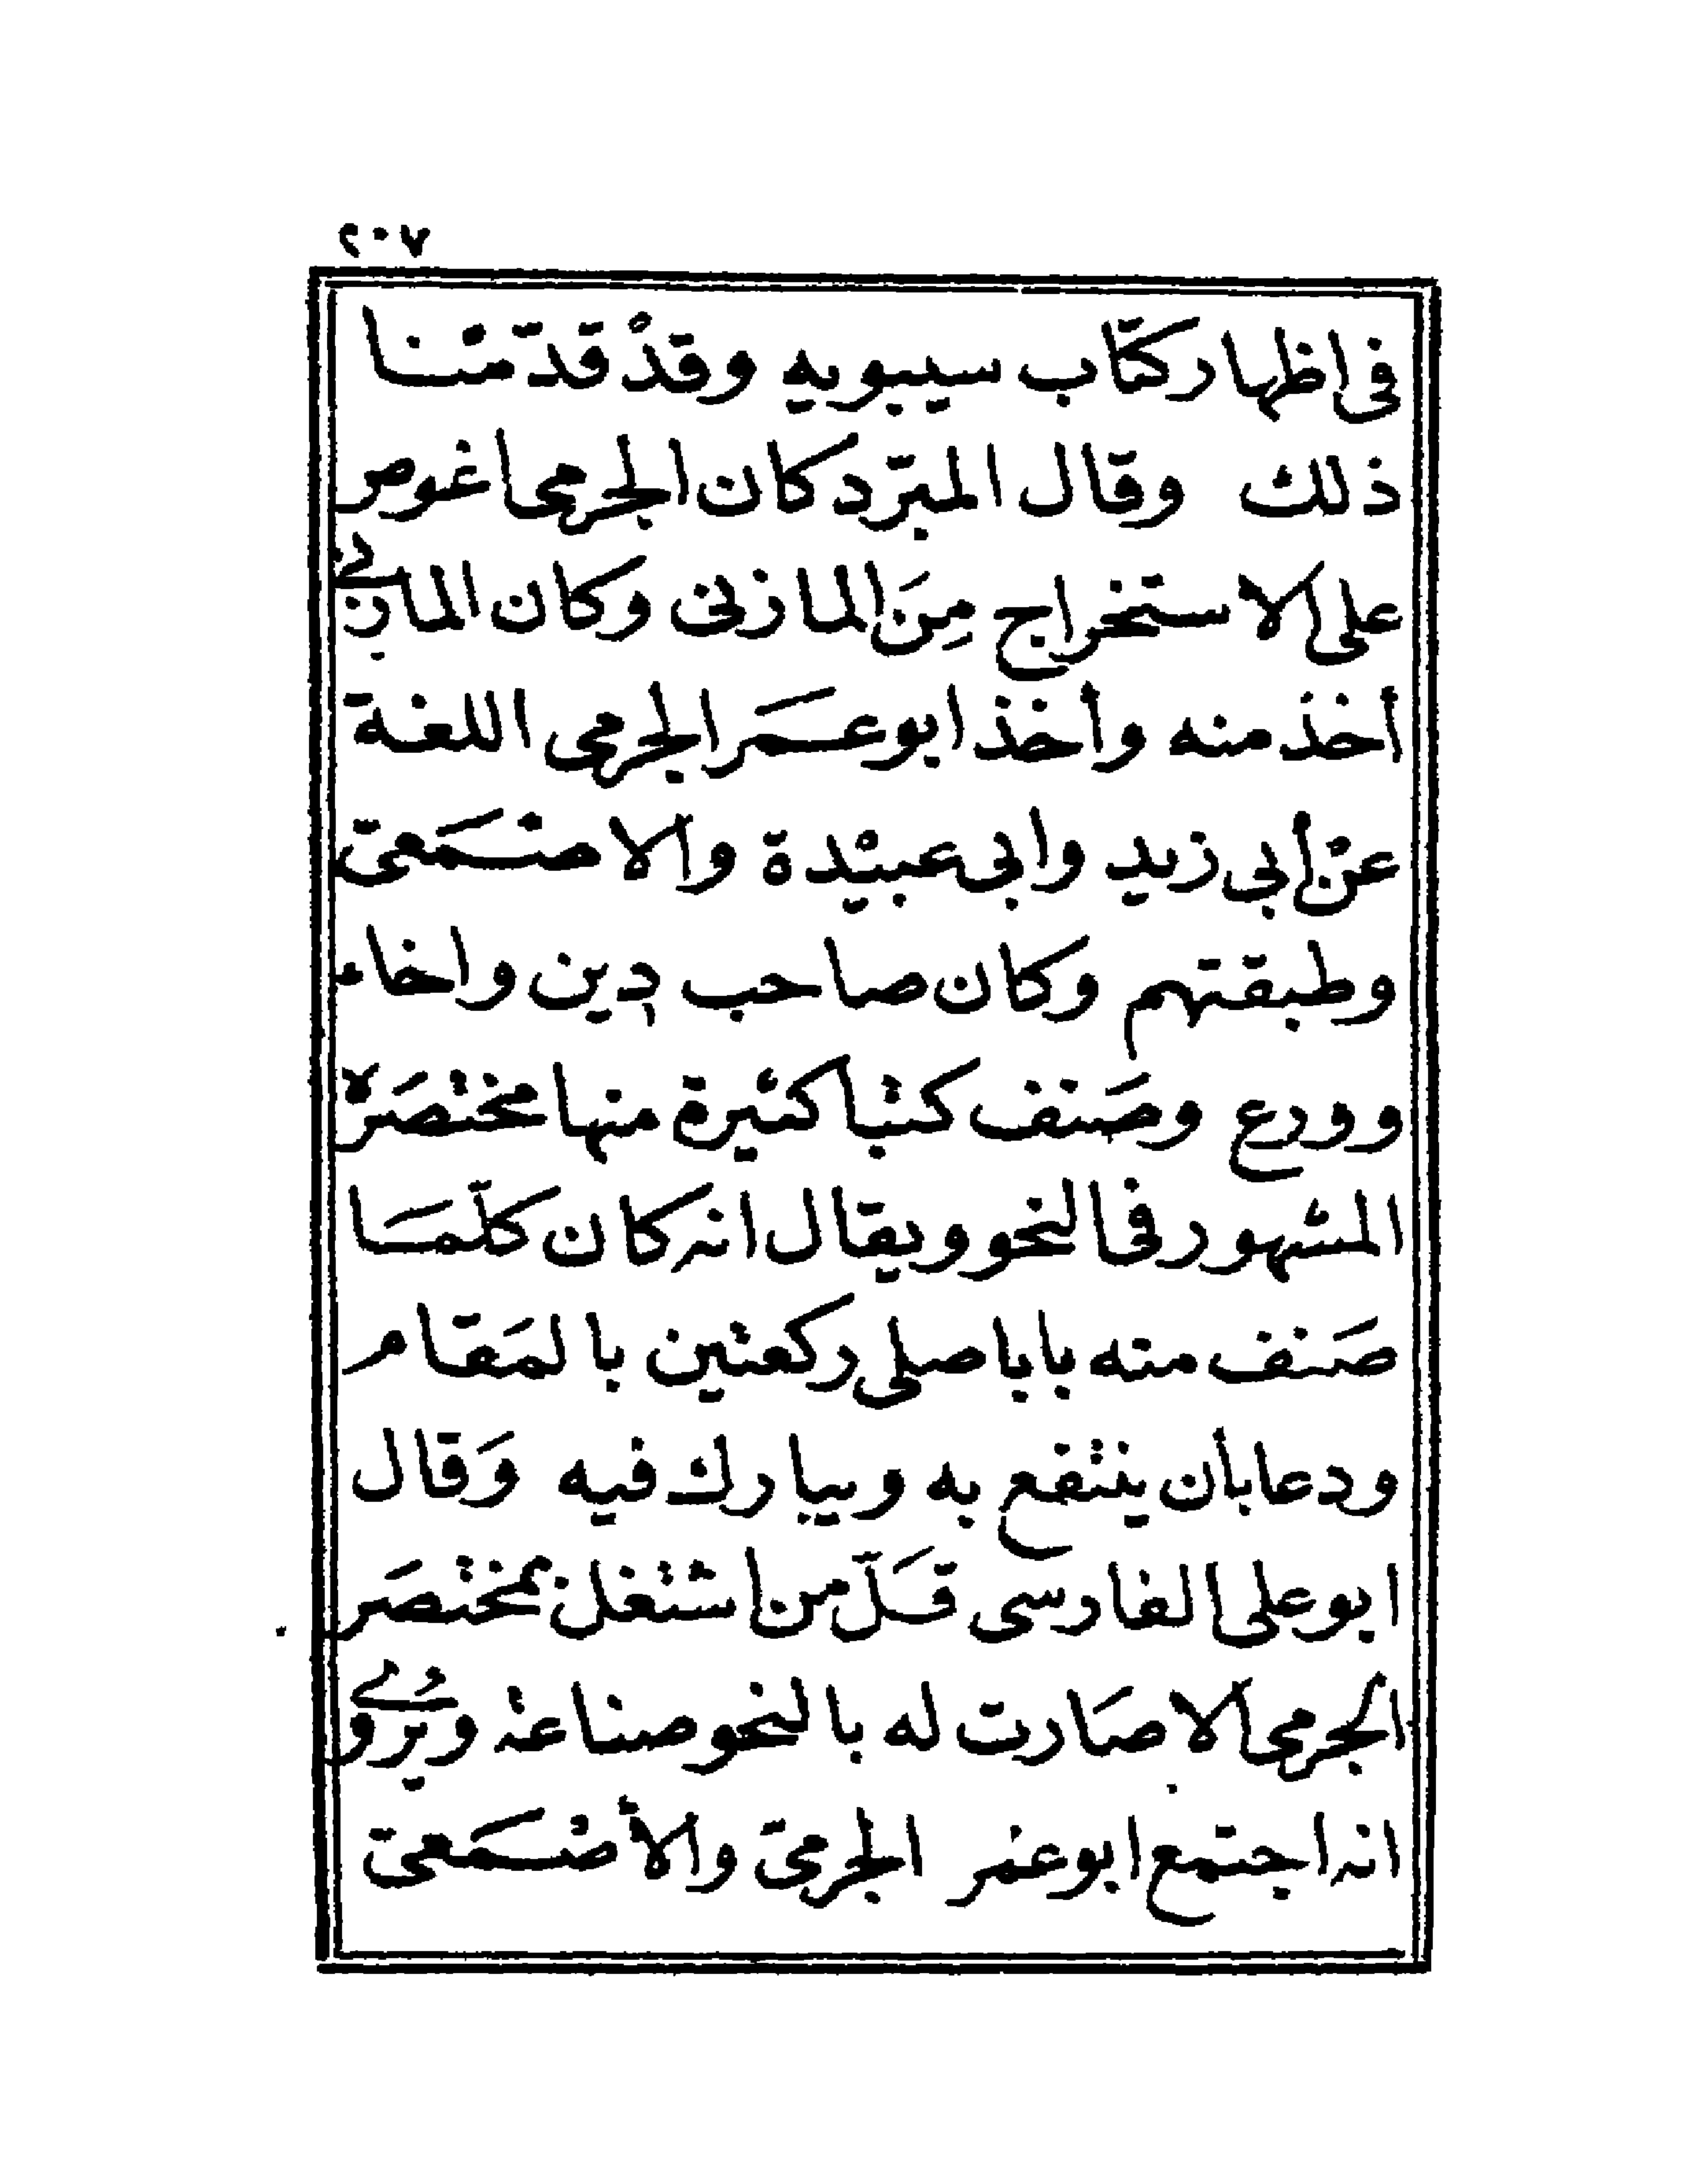 ٢٠٧
فى اظهار كتاب سيبويه وقدْ قدّمْنا
ذلك وقال المبرّد كان الجرمى اغوص
على الاستخراج مِنَ المازنى وكان المازنى
أخذ منه وأخذ ابو عمَر الجرمى اللغة
عنْ أبي زيد وابى عبيْدة والاصْمَعىّ
وطبقتهم وكان صاحب دين واخاء
وورع وصَنف كتبا كثيرة منها مختصَرْه
المشهور فى النحو ويقال انه كان كلّمَا
صَنف منه بابا صلى ركعتين بالمَقام
ودعا بأن ينتفع به ويبارك فيه وَقال
ابو على الفارسى قَلّ من اشتغل بمختصَر
الجرمى الا صَارت له بالنحو صناعة ويُروى
انه اجتمع ابو عمر الجرمىّ والأصْمَعىّ